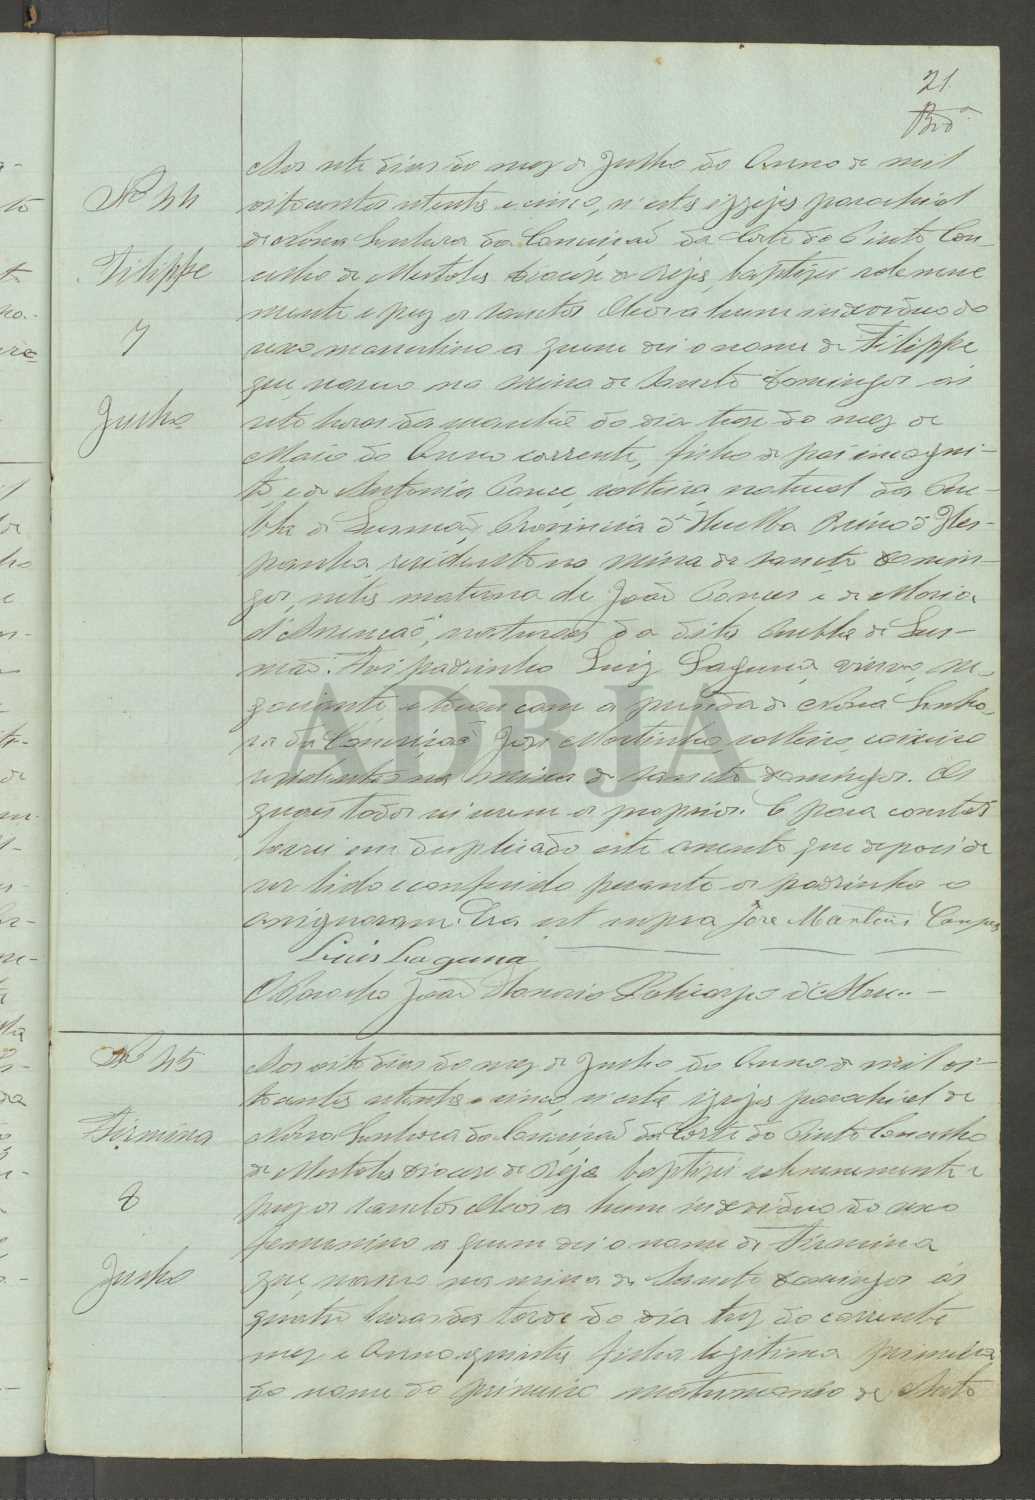 21
Nº 44
Filippe
7
Junho
Aos sete dias do mez de Junho do Anno de mil
oitocentos setenta e cinco, n'esta igreja parochial
de Nossa Senhora da Conceição da Corte do Pinto Con-
celho de Mertola diocese de Beja, baptizei solemne
mente e puz os sanctos Oleos a hum individuo do
sexo masculino a quem dei o nome de Filippe
que nasceo na mina de Sancto Domingos ás
sete horas da manhã do dia treze do mez de
Maio do Anno corrente, filho de pai incogni-
to, e de Antonia solteira, natural da Pue-
bla de Gusmão, Provincia d'Huelba Reino d'Hes-
panha, residente na mina de Sancto Domin-
gos, neto materno de João e de Maria
d'Assumção, naturaes da dita Puebla de Gus-
mão. Foi padrinho Luiz Laguna, viuvo, ne-
gociante, e tocou com a prenda de Nossa Senho-
ra da Conceição José Martinho, solteiro, caixeiro
residentes na mina de Sancto Domingos. Os
quaes todos sei serem os proprios. E para constar
lavrei em duplicado este assento que depois de
ser lido e conferido perante os padrinhos o
assignaram. Era ut supra José Martins
Luis Laguna
O Parocho João Honorio
ADBJA
Nº 45
Firmina
8
Junho
Aos oito dias do mez de Junho do Anno de mil oi-
tocentos setenta e cinco, n'esta igreja parochial de
Nossa Senhora da Conceição da Corte do Pinto Concelho
de Mertola diocese de Beja baptizei solemnemente e
puz os sanctos Oleos a hum individuo do sexo
femenino a quem dei o nome de Firmina
que nasceo na mina de Sancto Domingos ás
quatro horas da tarde do dia trez do corrente
mez e Anno filha legitima primeira
do nome do primeiro matrimonio de Anto